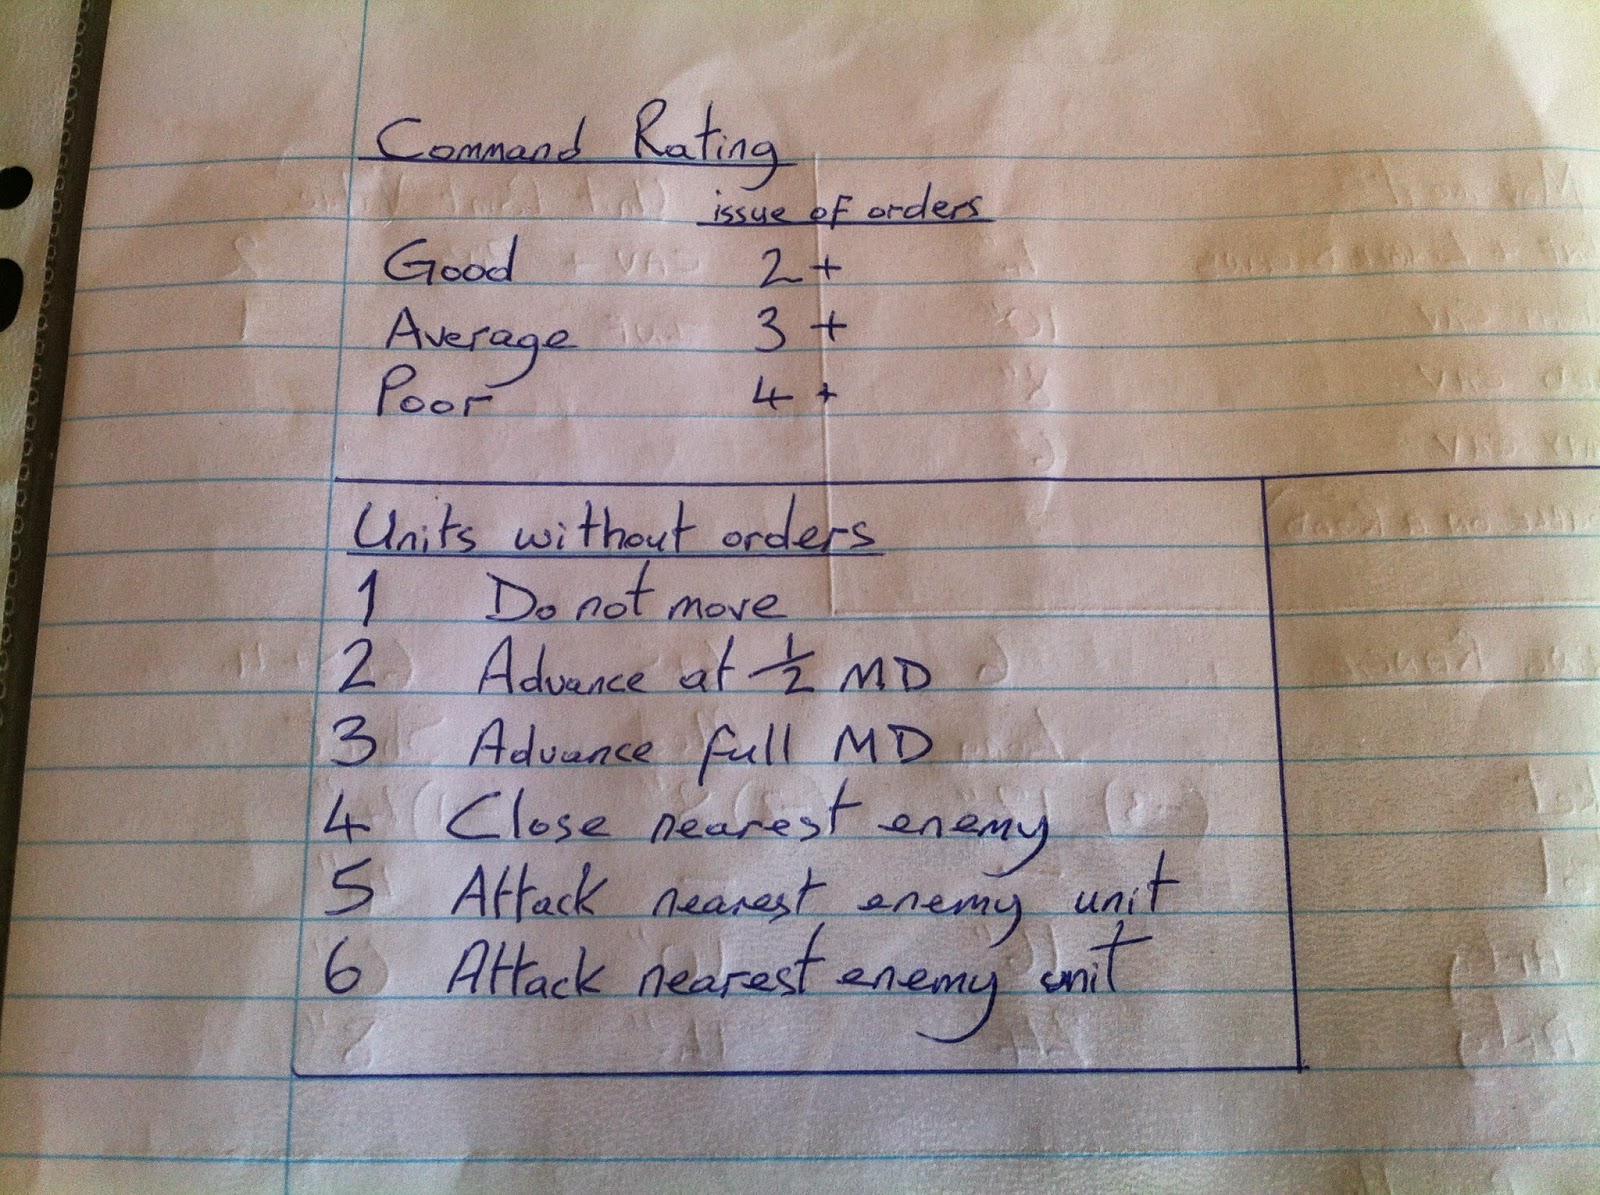 Command Rating
issue of orders
Good 2+
Average 3+
Poor 4+
Units without orders
1 Do not move
2 Advance at 1/2 MD
3 Advance full MD
4 Close nearest enemy
5 Attack nearest enemy unit
6 Attack nearest enemy unit